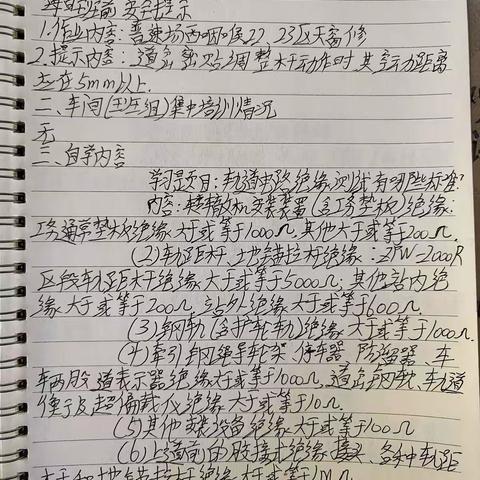 每日班前安全提示
1.作业内容:普速场西咽喉22、23区天窗修
2.提示内容:道岔密贴调整杆动作时其空动距离
应在5mm以上.
二、车间(班组)集中培训情况
无
三、自学内容
学习题目:轨道电路绝缘测试有哪些标准?
内容:转辙机安装装置(含工务垫板)绝缘:
工务通常垫板绝缘大于或等于1000Ω,其他大于或等于200Ω.
(2)轨距杆、地锚拉杆绝缘:ZPW-2000R
区段轨距杆绝缘大于或等于5000Ω;其他站内绝
缘大于或等于200Ω,站外绝缘大于或等于600Ω.
(3)钢轨(含护轮轨)绝缘大于或等于1000Ω.
(4)牵引钢绳导轮架、停车器、防溜器、车
车两股道表示器绝缘大于或等于1000Ω,道岔钢轨、轨道
衡及超偏载仪绝缘大于或等于10Ω.
(5)其他安装设备绝缘大于或等于100Ω
(6)上道前的胶接式绝缘接头、各种轨距
杆和地锚拉杆绝缘大于或等于1MΩ